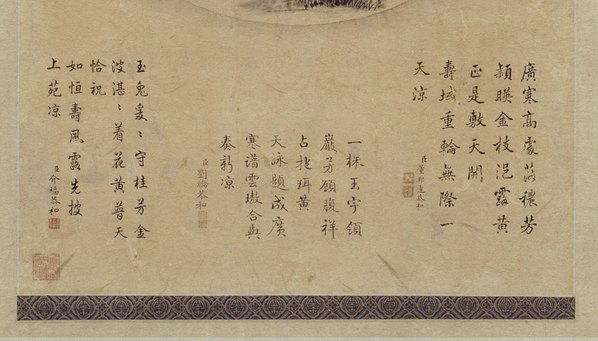 廣寒高處萬穠芳
穎映金枝浥露黄
正是敷天開
壽域重輪無際一
天凉
臣董邦達恭和
一株玉宇領
巖芳馥祥
占珥黄
天詠題成廣
寒譜雲璈合與
奏新凉
臣劉綸恭和
玉兔爰〻守桂芳金
波湛〻着花黄普天
恰祝
如恒壽風露先披
上苑凉
臣介福恭和